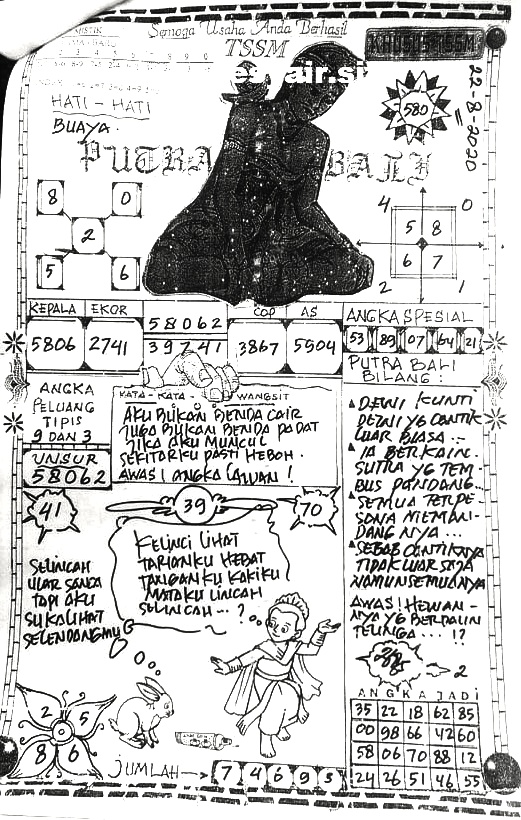 MISTIK
Semoga Usaha Anda Berhasil
TSSM
KHUSUS TSSM
esyair.si
22-8-2020
580
HATI - HATI
BUAYA.
PUTRA BALI
8 0
2
5 6
4 0
5 8
6 7
2 1
KEPALA EKOR
58062
COP AS
ANGKA SPESIAL
5806 2741
39741
3867 5904
53 89 07 64 21
PUTRA BALI
BILANG :
ANGKA
PELUANG
TIPIS
9 DAN 3
UNSUR
58062
KATA - KATA WANGSIT
AKU BUKAN BENDA CAIR
JUGA BUKAN BENDA PADAT
JIKA AKU MUNCUL
SEKITARKU PASTI HEBOH.
AWAS! ANGKA LAWAN!
DEWI KUNTI
DEWI YG CANTIK
LUAR BIASA...
IA BERKAIN
SUTRA YG TEM-
BUS PANDANG...
SEMUA TERPE-
SONA MEMAN-
DANG NYA...
SEBAB CANTIKNYA
TIDAK LUAR SAJA
NAMUN SEMUANYA
AWAS! HEWAN-
NYA YG BERDAUN
TELINGA....!?
41
39
70
KELINCI LIHAT
TARIANKU HEBAT
TANGANKU KAKIKU
MATAKU LINCAH
SELINCAH...?
SELINCAH
ULAR SANCA
TAPI AKU
SUKA LIHAT
SELENDANGMU
2
2 5
8 6
JUMLAH
7 4 6 9 3
ANGKA JADI
35 22 18 62 85
00 98 66 42 60
58 06 70 88 12
24 26 51 46 55